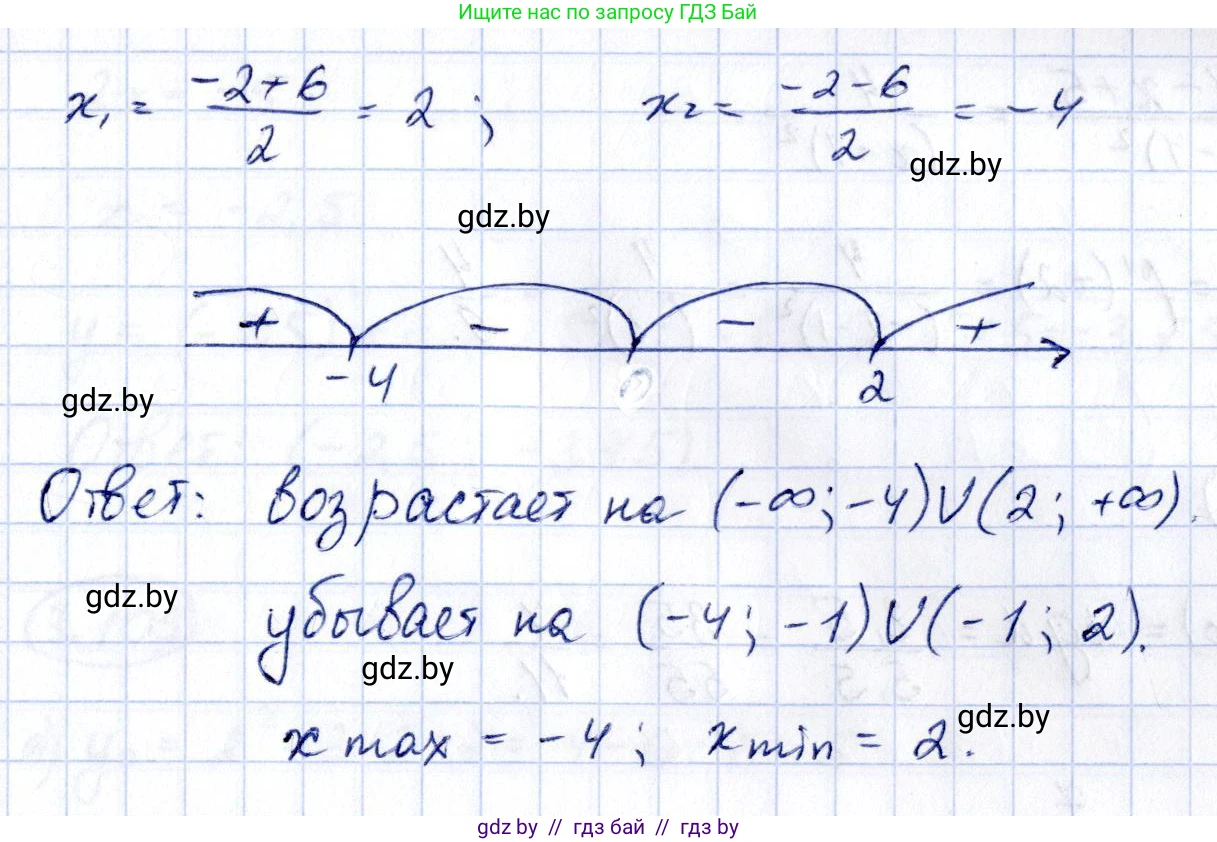 Ищите нас по запросу ГДЗ Бай
x₁ = (-2+6)/2 = 2 ; x₂ = (-2-6)/2 = -4
gdz.by
gdz.by
+ - - +
-4 2
gdz.by
Ответ: возрастает на (-∞; -4)∪(2; +∞).
gdz.by
убывает на (-4; -1)∪(-1; 2).
gdz.by
gdz.by
x max = -4; x min = 2.
gdz.by // гдз бай // gdz.by